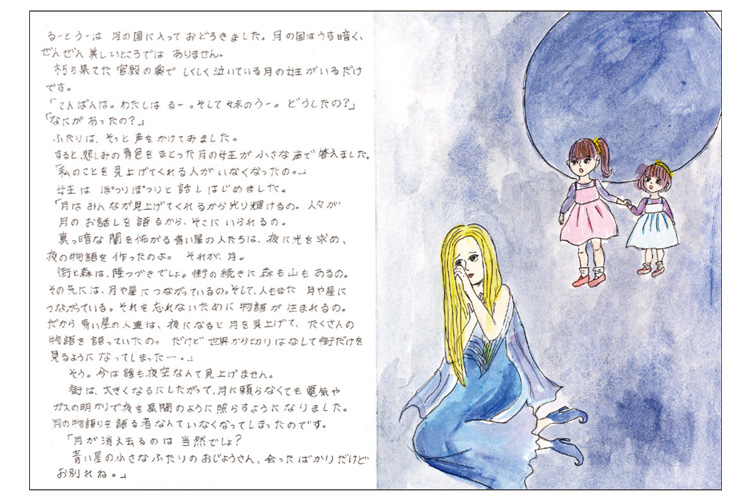 るーとうーは 月の国に入って おどろきました。月の国はうす暗く、
ぜんぜん 美しいところでは ありません。
朽ち果てた 宮殿の奥で しくしく泣いている月の女王がいるだけ
です。
「こんばんは。わたしは るー。そして妹のうー。どうしたの?」
「なにが あったの?」
ふたりは、そっと声をかけてみました。
すると、悲しみの青色をまとった月の女王が 小さな声で答えました。
「私のことを見上げてくれる人が いなくなったの。」
女王は ぽつりぽつりと 話し はじめました。
「月は みんなが見上げてくれるから光り輝けるの。人々が
月の お話しを 語るから、そこに いられるの。
真っ暗な 闇を怖がる青い星の人たちは、夜に光を求め、
夜の物語を 作ったのよ。 それが、月。
街と森は、陸つづきでしょ。街の続きに森も山もあるの。
その先には、月や星につながっているの。そして、人もまた 月や星に
つながっている。それを忘れないために 物語が 生まれるの。
だから青い星の人達は、夜になると月を見上げて、たくさんの
物語を語っていたの。 だけど 世界から切りはなして街だけを
見るように なってしまった…。」
そう。今は誰も夜空なんて見上げません。
街は、大きくなるにしたがって、月に頼らなくても 電気や
ガスの明かりで夜を昼間のように照らすようになりました。
月の物語りを語る者なんていなくなってしまったのです。
「月が消え去るのは 当然でしょ?
青い星の小さなふたりのおじょうさん、会ったばかりだけど
お別れね。」